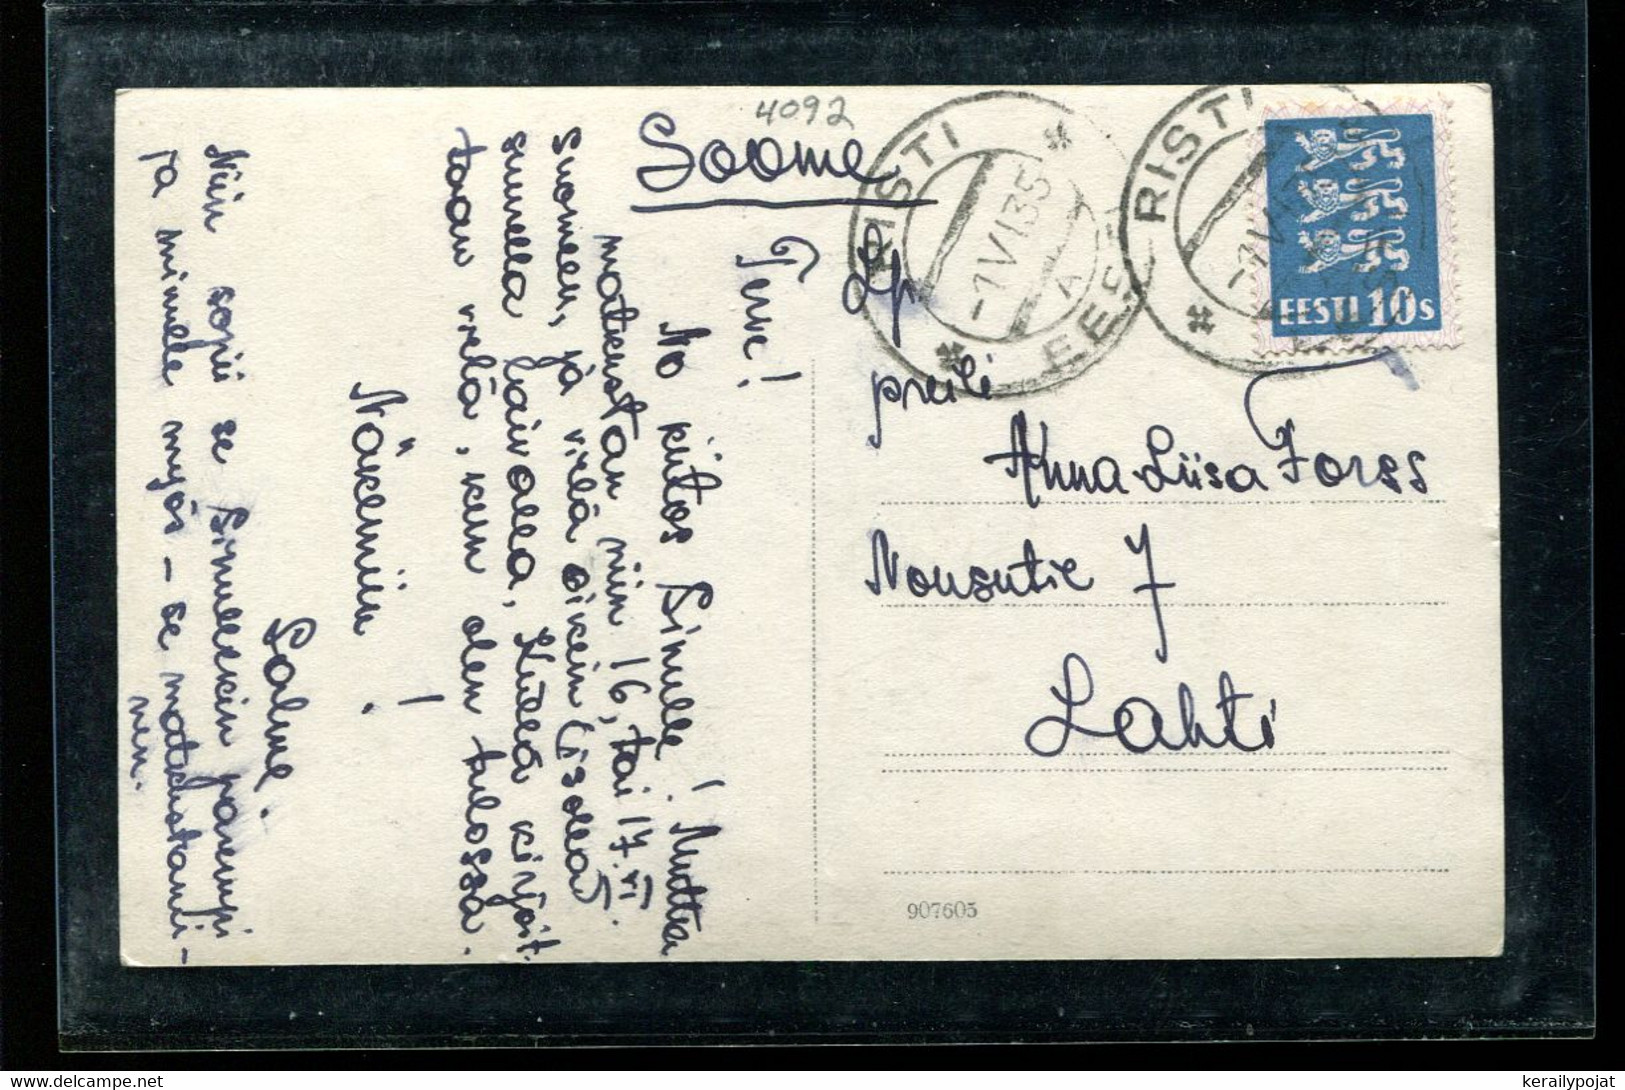 4092
Soome
RISTI
-7.VI.35
A
EESTI
RISTI
EESTI 10s
Lp
preili
Anna-Liisa Forss
Nousutie 7
Lahti
907605
Terve!
No kiitos Sinulle! Mutta
matkustan niin 16, tai 17.VI.
Suomeen, ja vielä oikein isolla
summella päivällä, Kyllä kirjoit-
taan vielä, kun olen tulossa.
Näkemiin!
Salme.
Niin sopii se Sinullekin parempi
ja minulle myös - se matkustami-
nen.
kerailypojat